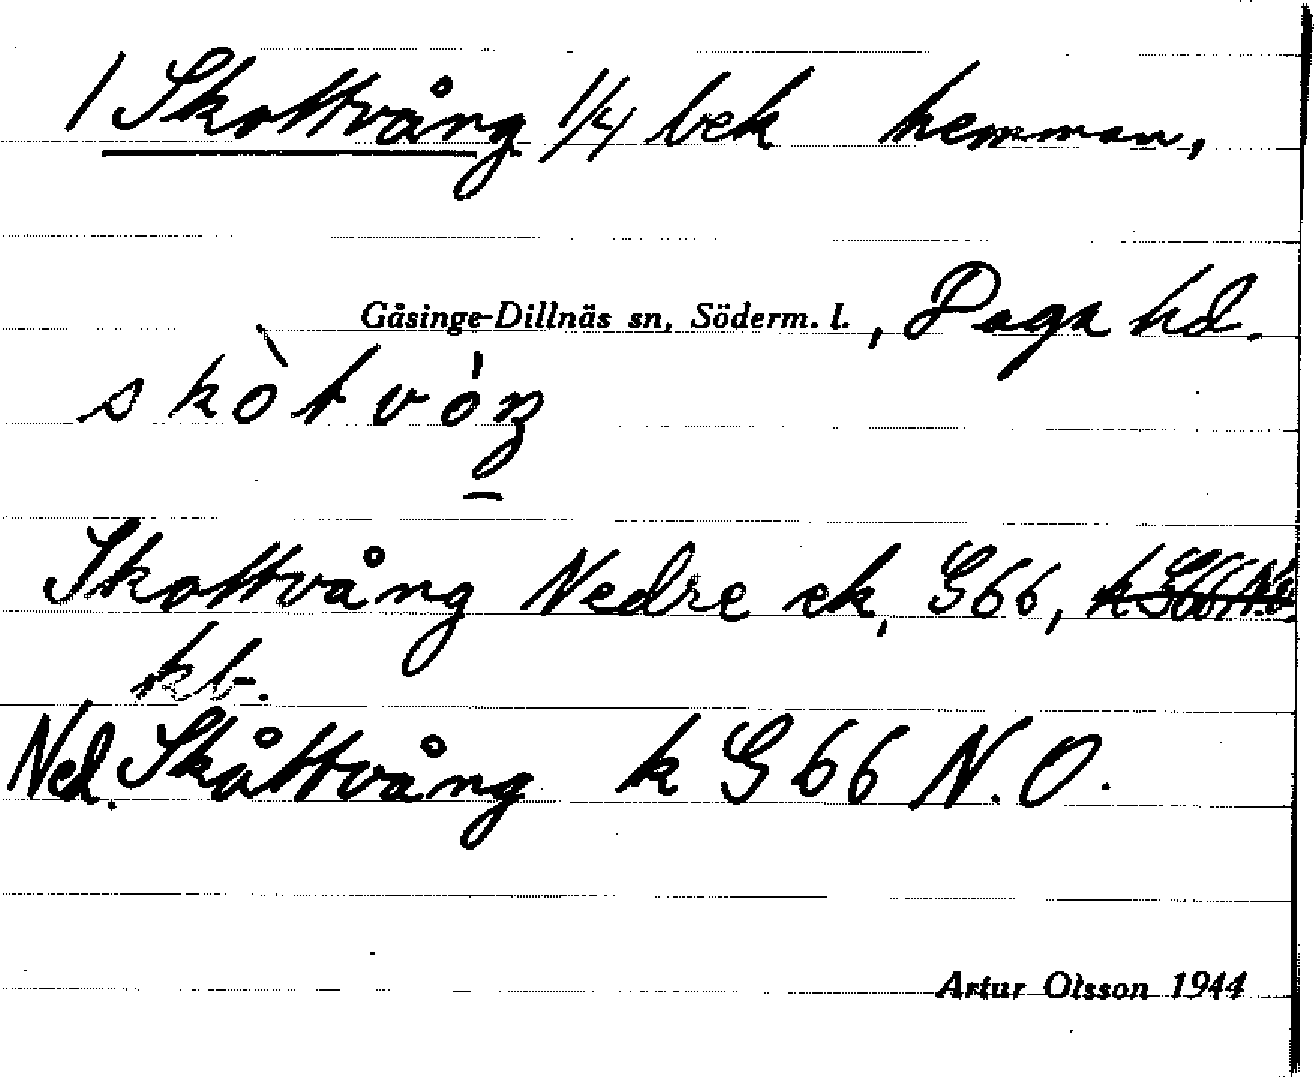 1 Skottvång 1/4 bek hemman,
Gåsinge-Dillnäs sn, Söderm. l., Daga hd.
skòtvóŋ
Skottvång Nedre ek, G66, k G66 N.O.
kb.
Ned. Skåttvång k G 66 N.O.
Artur Olsson 1944